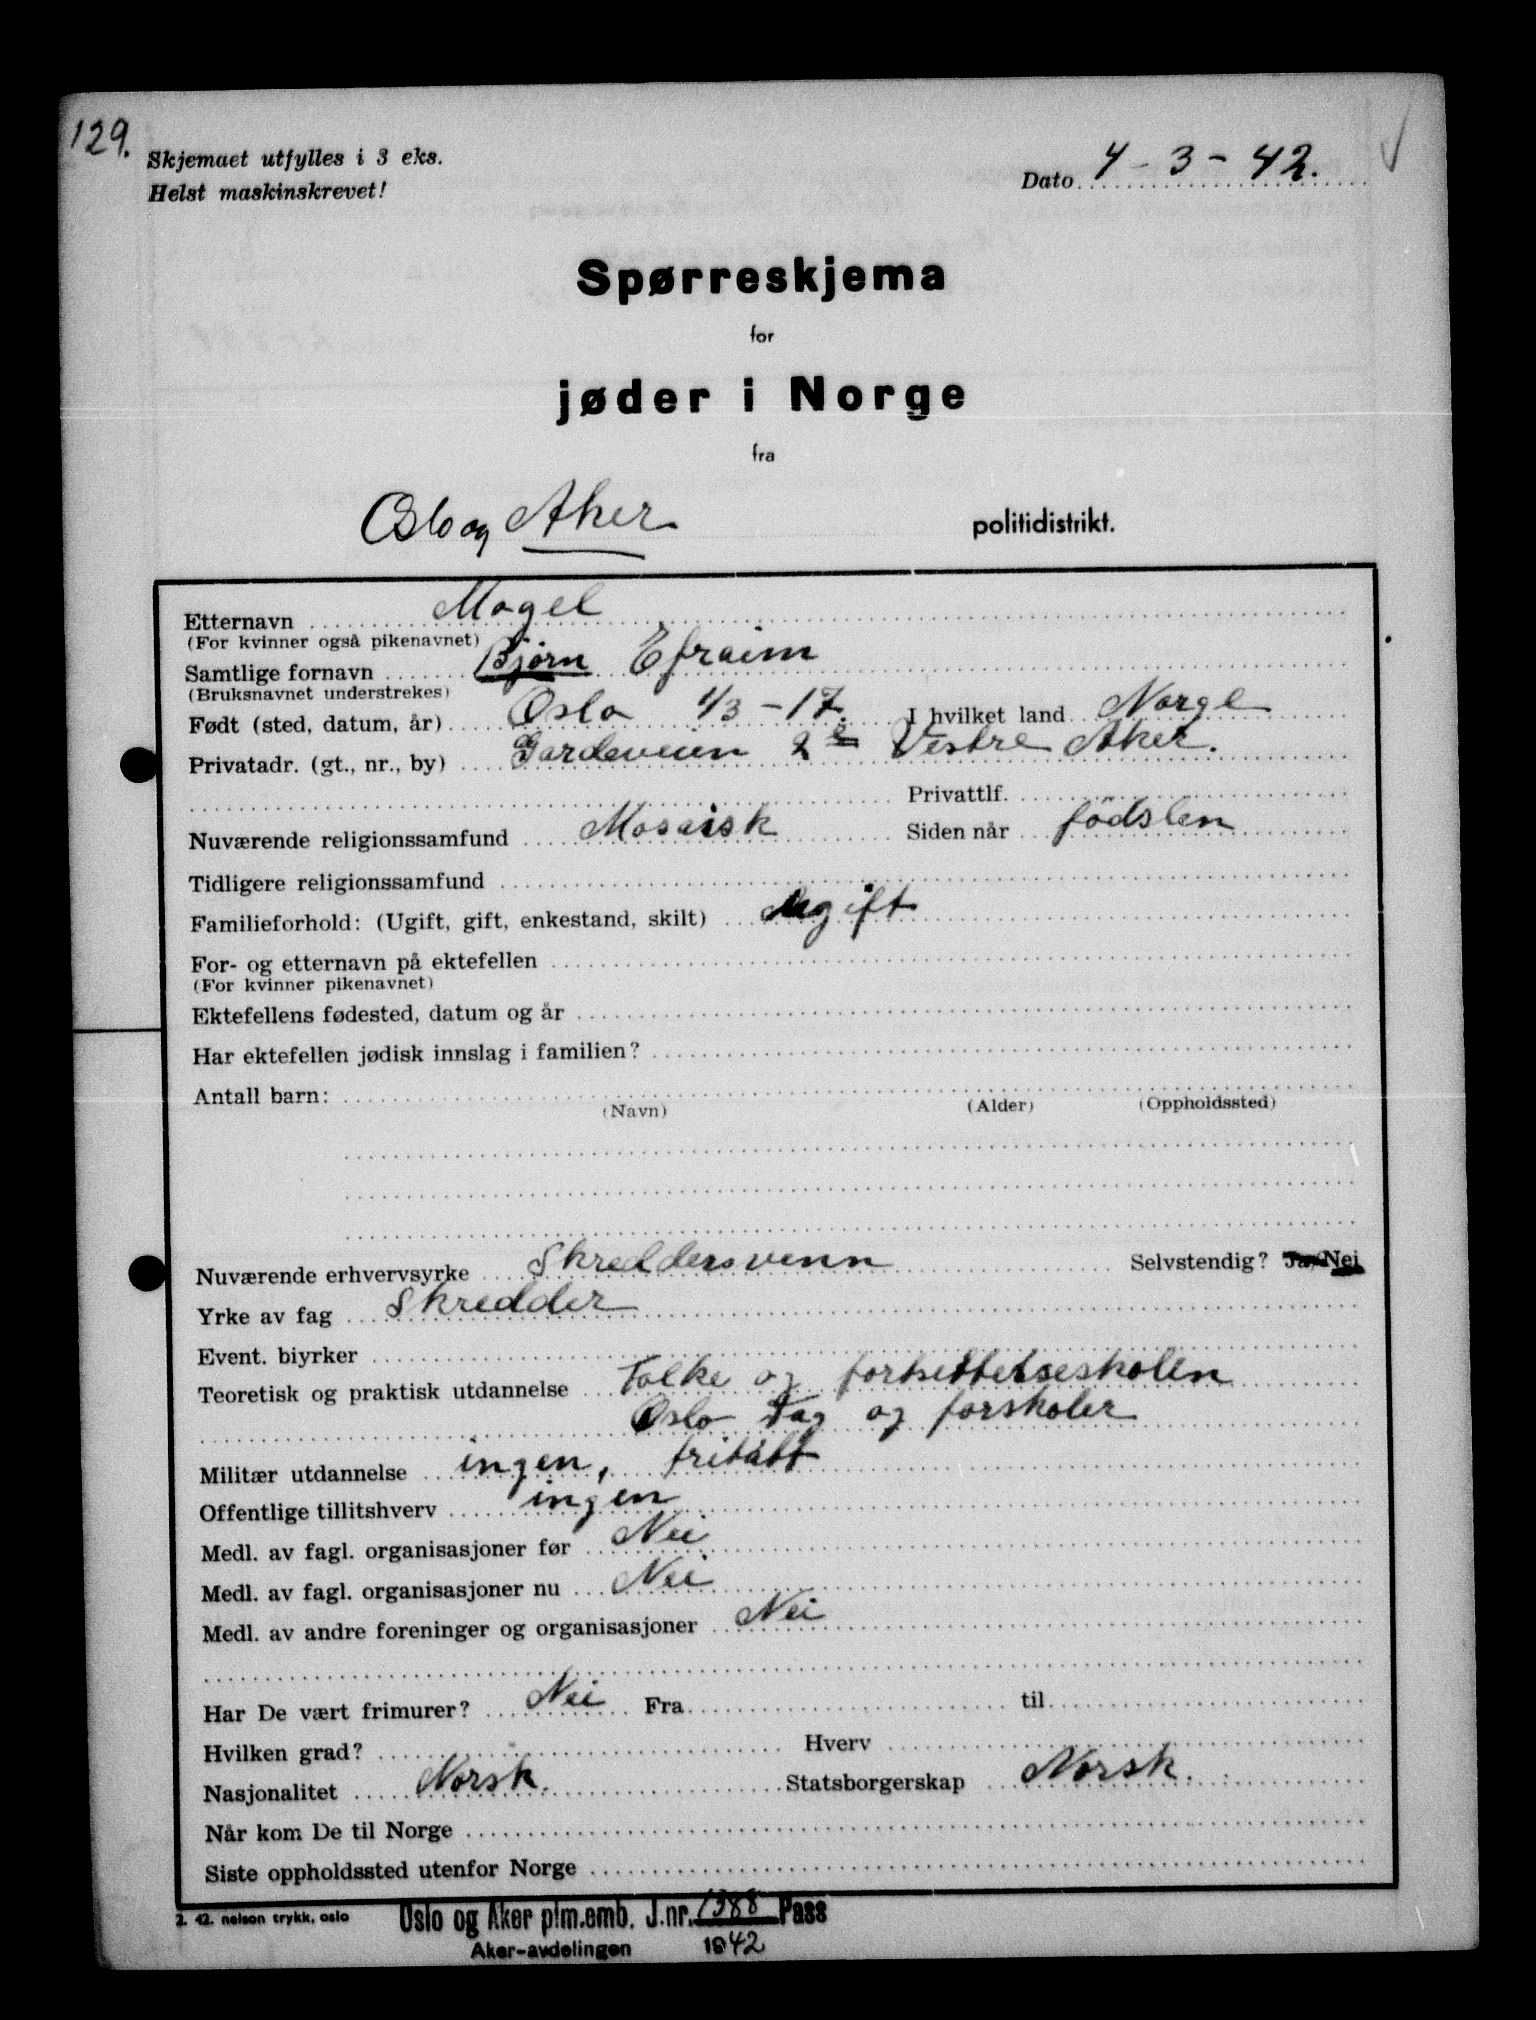 129.
Skjemaet utfylles i 3 eks.
Helst maskinskrevet!
Dato 4-3-42.
Spørreskjema
for
jøder i Norge
fra
Oslo og Aker politidistrikt.
Etternavn Mogel
(For kvinner også pikenavnet)
Samtlige fornavn Bjørn Efraim
(Bruksnavnet understrekes)
Født (sted, datum, år) Oslo 1/3-17. I hvilket land Norge
Privatadr. (gt., nr., by) 2e Vestre Aker.
Privattlf.
Nuværende religionssamfund Mosaisk Siden når födslen
Tidligere religionssamfund
Familieforhold: (Ugift, gift, enkestand, skilt) Ugift
For- og etternavn på ektefellen
(For kvinner pikenavnet)
Ektefellens fødested, datum og år
Har ektefellen jødisk innslag i familien?
Antall barn:
(Navn) (Alder) (Oppholdssted)
Nuværende erhvervsyrke Skreddersvenn Selvstendig? Ja/Nei
Yrke av fag Skredder
Event. biyrker
Teoretisk og praktisk utdannelse Folke og fortsettelseskolen
Oslo Fag og forskoler
Militær utdannelse ingen, fritatt
Offentlige tillitshverv ingen
Medl. av fagl. organisasjoner før Nei
Medl. av fagl. organisasjoner nu Nei
Medl. av andre foreninger og organisasjoner Nei
Har De vært frimurer? Nei Fra til
Hvilken grad? Hverv
Nasjonalitet Norsk. Statsborgerskap Norsk.
Når kom De til Norge
Siste oppholdssted utenfor Norge
2. 42. nelson trykk, oslo
Oslo og Aker plm.emb. J.nr. 1388 Pass
Aker-avdelingen 1942